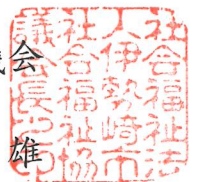 社会福祉法
人伊勢崎市
社会福祉協
議会長之印
会
雄